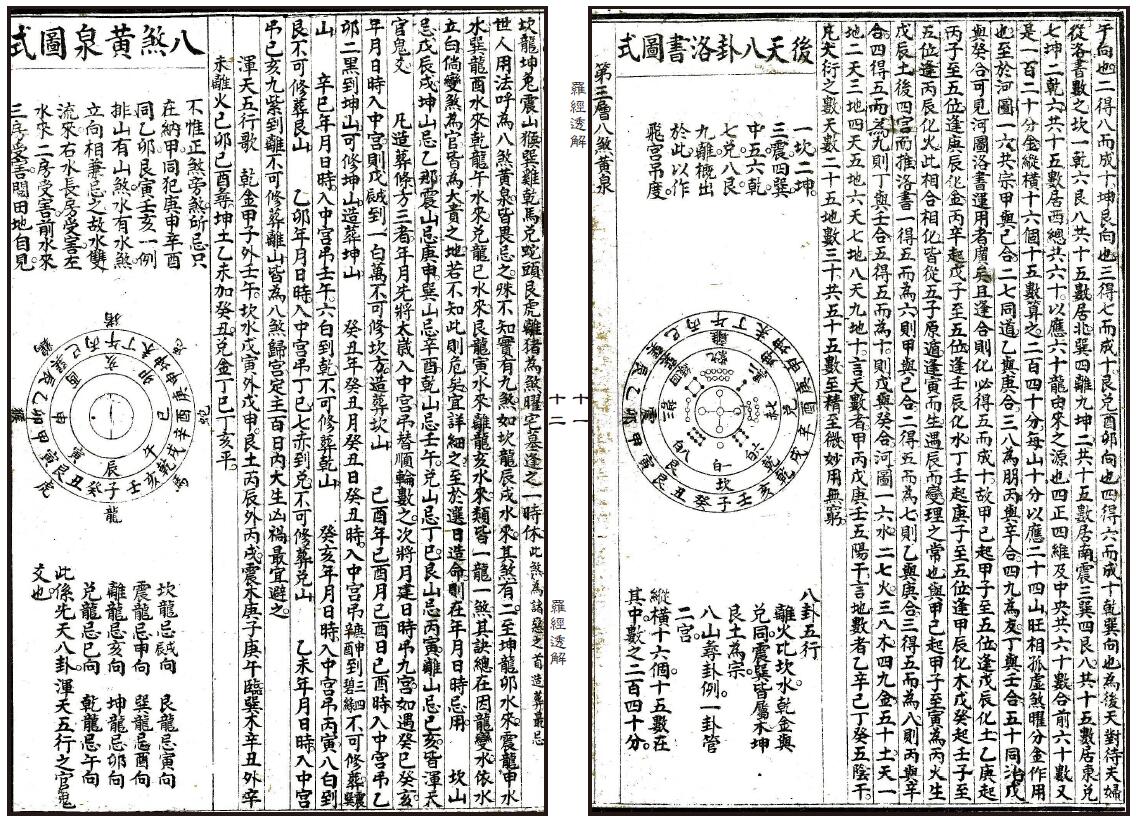 于向也二得八而成十坤艮向也三得七而成十艮兌酉卯向也四得六而成十乾巽向也為後天對待夫婦
從洛書數之坎一乾六艮八共十五數居北巽四離九坤二共十五數居南震三巽四艮八共十五數居東兌
七坤二乾六共十五數居西總共六十以應六十龍由來之源也四正四維及中央共六十數合前六十數又
是一百二十分金縱橫十六個十五數算之二百四十分每山十分以應二十四山旺相孤虛煞曜分金作用
也至於河圖一六共宗甲與己合二七同道乙與庚合三八為朋丙與辛合四九為友丁與壬合五十同治戊
與癸合可見河圖洛書運用者廣矣且逢合則化必得五而成十故甲己起甲子至五位逢戊辰化土乙庚起
丙子至五位逢庚辰化金丙辛起戊子至五位逢壬辰化水丁壬起庚子至五位逢甲辰化木戊癸起壬子至
五位逢丙辰化火此相合相化皆從五子原遁逢寅而生遇辰而變理之常也與甲己起甲子至寅為丙火生
戊辰土後四宮而推洛書一得五而為六則甲與己合二得五而為七則乙與庚合三得五而為八則丙與辛
合四得五而為九則丁與壬合五得五而為十則戊與癸合河圖一六水二七火三八木四九金五十土天一
地二天三地四天五地六天七地八天九地十言天數者甲丙戊庚壬五陽干言地數者乙辛己丁癸五陰干
凡大衍之數天數二十五地數三十共五十五數至精至微妙用無窮。
後天八卦洛書圖式
一坎二坤
三震四巽
中五六乾
七兌八艮
九離概出
於此以作
飛宮吊度
八卦五行
離火比坎水。乾金與
兌同。震巽皆屬木。坤
艮土為宗。
八山尋卦例。一卦管
二宮。
縱橫十六個十五數在
其中。數之二百四十分。
第三層八煞黃泉
羅經透解
十一
十二
羅經透解
坎龍坤兔震山猴巽雞乾馬兌蛇頭艮虎離猪為煞曜宅墓逢之一時休此煞為諸惡之首造葬最忌
世人用法呼為八煞黃泉皆畏忌之殊不知實有九煞如坎龍辰戌水來其煞有二至坤龍卯水來。震龍申水
來。巽龍酉水來乾龍午水來兌龍巳水來艮龍寅水來離龍亥水來類皆一龍一煞其訣總在因龍變水依水
立向倘變煞為官皆為大貴之地若不知此則危矣宜詳細之至於選日造命則在年月日時忌用 坎山
忌戊辰戌坤山忌乙卯震山忌庚申。巽山忌辛酉乾山忌壬午。兌山忌丁巳艮山忌丙寅離山忌己亥皆渾天
官鬼爻 凡造葬修方三者年月先將太歲入中宮吊替順輪數之次將月建日時吊九宮如遇癸巳癸亥
年月日時入中宮則戊辰戌到一白萬不可修坎方。造葬坎山 己酉年己酉月己酉日己酉時入中宮吊乙
卯二黑到坤山可修坤山造葬坤山 癸丑年癸丑月癸丑日癸丑時。入中宮吊
山 辛巳年月日時。入中宮吊壬午六白到乾不可修葬乾山 癸亥年月日時入中宮吊丙寅八白到
艮不可修葬艮山 乙卯年月日時入中宮吊丁巳七赤到兌不可修葬兌山 乙未年月日時入中宮
吊己亥九紫到離不可修葬離山皆為八煞歸宮定主百日內大生凶禍最宜避之
渾天五行歌 乾金甲子外壬午。坎水戊寅外戊申。艮土丙辰外丙戌震木庚子庚午臨巽木辛丑外辛
未離火己卯己酉尋坤土乙未加癸丑。兌金丁巳丁亥平。
八煞黃泉圖式
不惟正煞旁煞所忌只
在納甲同犯庚申辛酉
同乙卯艮寅壬亥一例
排山有山煞水有水煞
立向相兼忌之故水雙
流來右水長房受害左
水來二房受害前水來
三房受害閱田地自見
坎龍忌辰戌向 艮龍忌寅向
震龍忌申向 巽龍忌酉向
離龍忌亥向 坤龍忌卯向
兌龍忌巳向 乾龍忌午向
此係先天八卦渾天五行之官鬼
爻也。